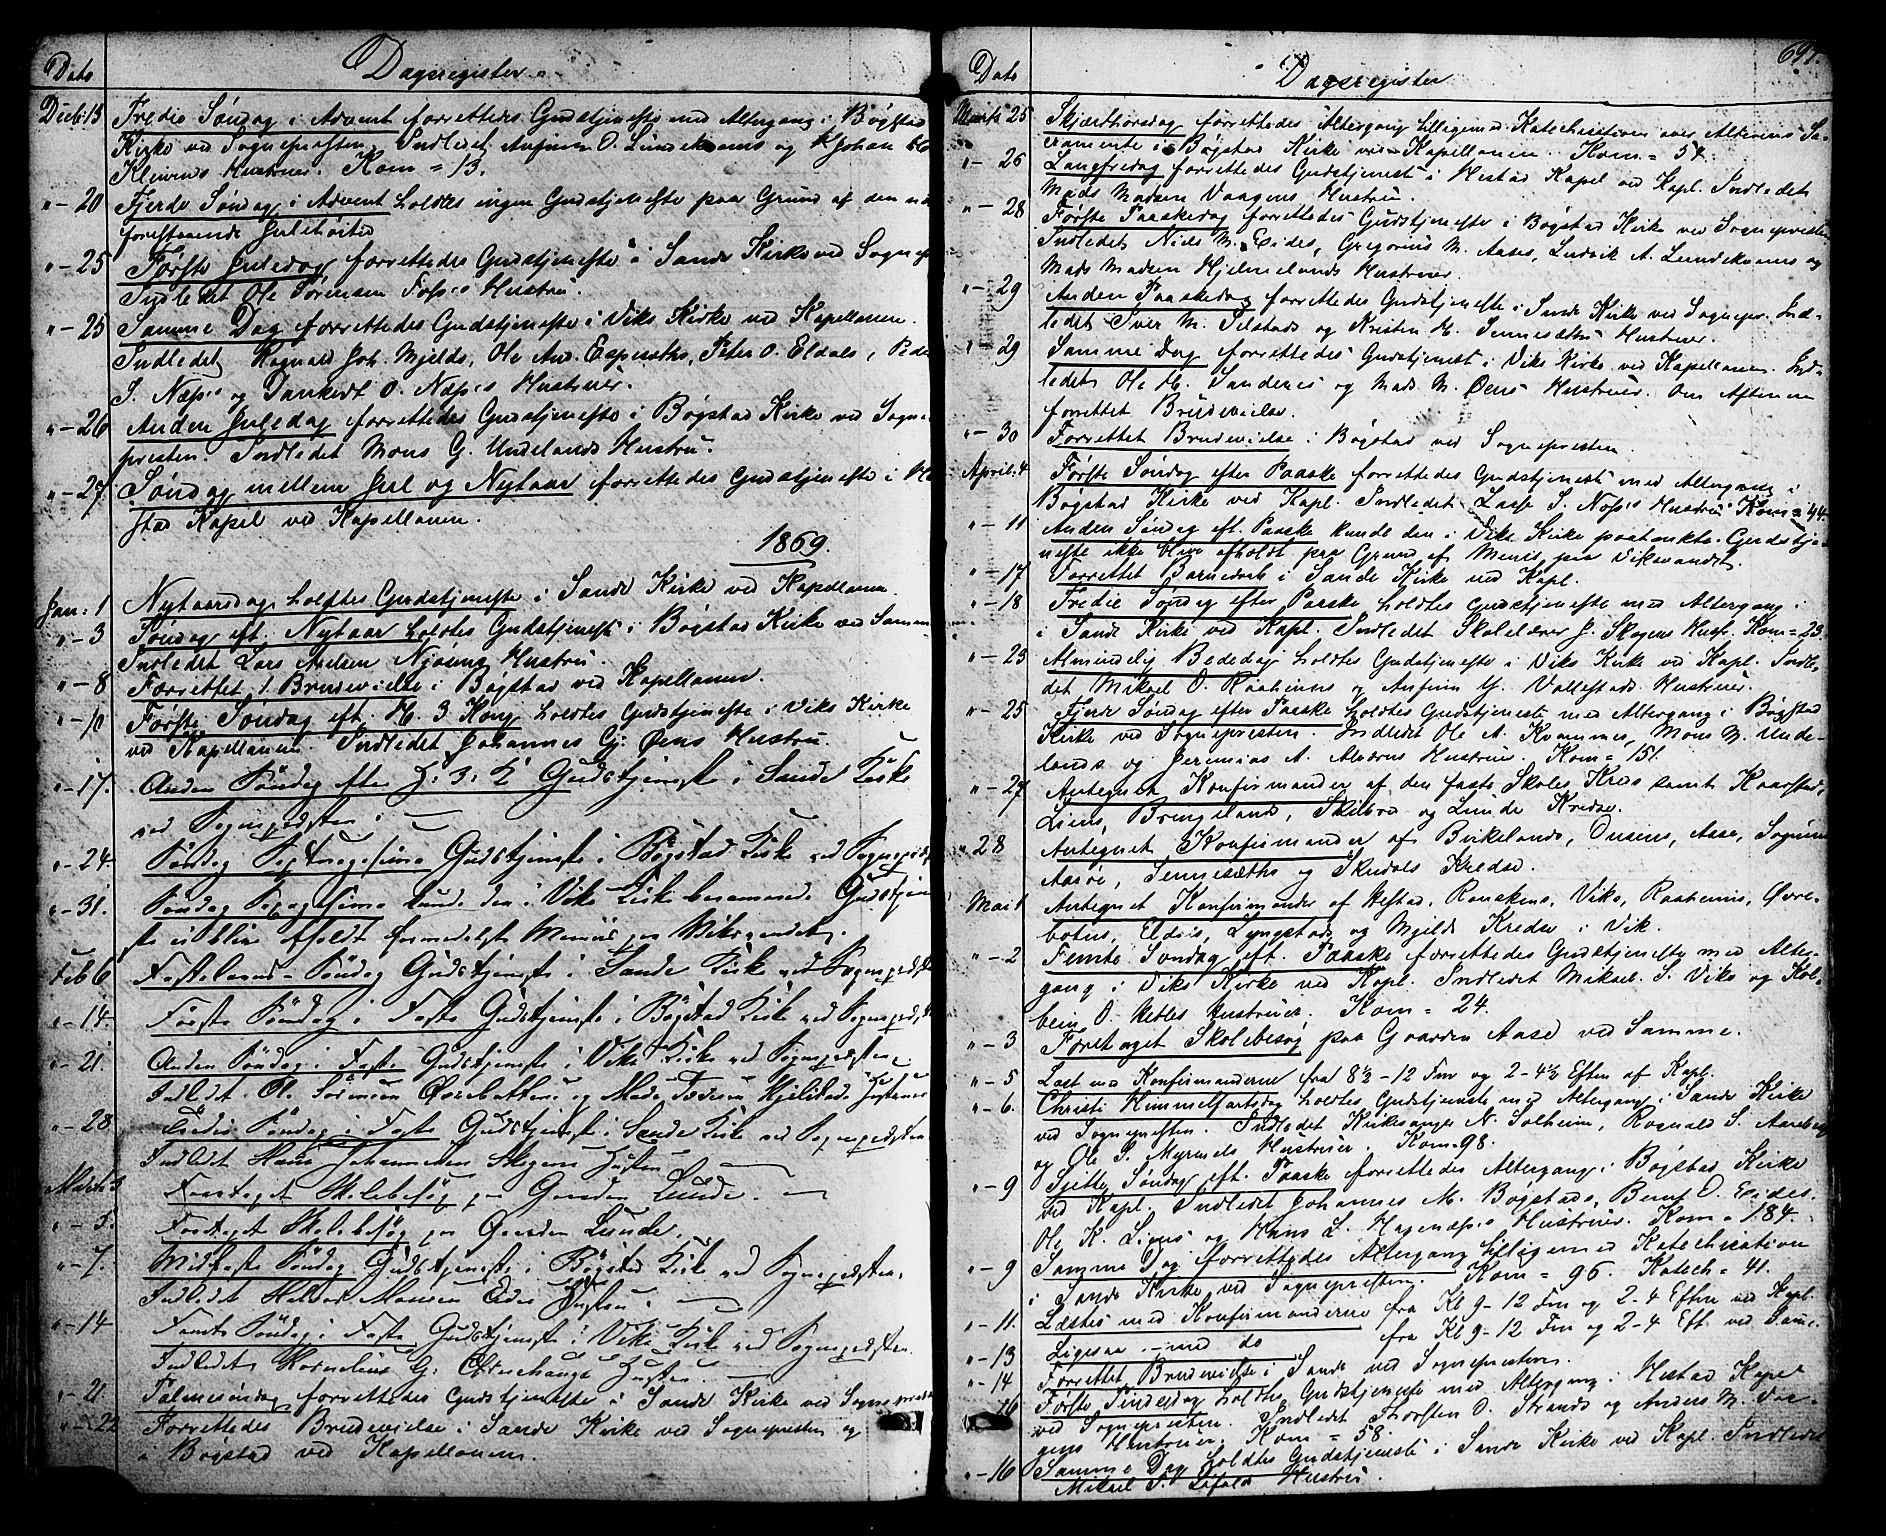 Dato
Dagsregister.
Decb: 13 Tredie Søndag i Advent forrettedes Gudstjeneste med Altergang i Bøgstad
Kirke ved Sognepresten. Indledet Anfind O. Lundekvams og Johan
Hustruer. Kom = 13.
"- 20 Fjerde Søndag i Advent holdtes ingen Gudstjeneste paa Grund af den
forestaaende Julehøitid
"- 25 Første Juledag forrettedes Gudstjeneste i Sande Kirke ved Sognep
Indledet Ole Sørensen Fos's Hustru.
"- 25 Samme Dag forrettedes Gudstjeneste i Viks Kirke ved Kapellanen.
Indledet Ragnald Joh. Mjelds, Ole And. Espesæths, Peter O. Eldals, Peder
S. Næss's og Dankert O. Næss's Hustruer.
"- 26 Anden Juledag forrettedes Gudstjeneste i Bøgstad Kirke ved Sogne-
presten. Indledet Mons G. Undelands Hustru.
"- 27 Søndag mellem Jul og Nytaar forrettedes Gudstjeneste i He
stad Kapel ved Kapellanen.
1869.
Jan: 1 Nytaarsdag holdtes Gudstjeneste i Sande Kirke ved Kapellanen.
"- 3 Søndag eft. Nytaar holdtes Gudstjeneste i Bøgstad Kirke ved Samm
Indledet Lars Axelsen Njøsens Hustru.
"- 8 Forrettet 1 Brudevielse i Bøgstad ved Kapellanen.
"- 10 Første Søndag eft. H. 3 Kong. holdtes Gudstjeneste i Viks Kirke
ved Kapellanen. Indledet Johannes Gj. Øens Hustru.
"- 17. Anden Søndag efter H. 3. K. Gudstjeneste i Sande Kirke
ved Sognepresten.
"- 24. Søndag Septuagesima Gudstjeneste i Bøgstad Kirke ved Sognepr
"- 31. Søndag Sexagesima kunde den i Viks Kirke berammede Gudstjene
ste ei blive afholdt formedelst Menis paa Viksvandet.
Feb 6 Fastelavns-Søndag Gudstjeneste i Sande Kirke ved Sogneprest
"- 14. Første Søndag i Faste Gudstjeneste i Bøgstad Kirke ved Sognepr
"- 21. Anden Søndag i Faste Gudstjeneste i Viks Kirke ved Sognepresten.
Indledet Ol. Sørensen Øvrebottens og Mads Hjelstads Hustruer
"- 28 Tredie Søndag i Faste Gudstjeneste i Sande Kirke ved Sognepresten.
Indledet Hans Johannesen Skogens Hustru
Marts 3 Foretaget Skolebesøg paa Gaarden Lunde.
"- 5. Foretaget Skolebesøg paa Gaarden Lunde.
"- 7. Midfaste Søndag Gudstjeneste i Bøgstad Kirke ved Sognepresten.
Indledet Monsen Eides Hustru.
"- 14 Femte Søndag i Faste Gudstjeneste i Viks Kirke ved Sognepresten.
Indledet Kornelius G. Hustru.
"- 21 Palmesøndag forrettedes Gudstjeneste i Sande Kirke ved Sognepresten
"- 22 Forrettedes Brudevielse i Sande Kirke ved Sognepresten og
i Bøgstad ved Kapellanen.
Dato
Dagsregister
697.
Marts 25 Skjærthorsdag forrettedes Altergang tilligemed Katechisation over Alterens Sa-
cramente i Bøgstad Kirke ved Kapellanen. Kom = 57.
"- 26 Langfredag forrettedes Gudstjenest i Hestad Kapel ved Kapl. Indledet
Mads Madsen Vaagens Hustru.
"- 28 Første Paaskedag forrettedes Gudstjeneste i Bøgstad Kirke ved Sognepresten
Indledet Niels M. Eides, Gregorius M. Aases, Ludvik A. Lundekvams og
Mads Madsen Hjelmelands Hustruer.
"- 29 Anden Paaskedag forrettedes Gudstjeneste i Sande Kirke ved Sognepr. Ind-
ledet Siver M. Selstads og Kristen H. Tennesæths Hustruer.
" 29 Samme Dag forrettedes Gudstjenest i Viks Kirke ved Kapellanen. Ind-
ledet Ole H. Sandnes og Mads M. Øens Hustruer. Om Aftenen
forrettet Brudevielse.
"- 30 Forrettet Brudevielse i Bøgstad ved Sognepresten.
April. 4 Første Søndag efter Paaske forrettedes Gudstjenest med Altergang i
Bøgstad Kirke ved Kapl. Indledet Lasse S. Nøss's Hustru Kom = 44.
"- 11 Anden Søndag eft. Paaske kunde den i Viks Kirke paatænkte Gudstje-
neste ikke blive afholdt paa Grund af Menis paa Viksvandet.
"- 17 Forrettet Barnedaab i Sande Kirke ved Kapl.
"- 18 Tredie Søndag efter Paaske holdtes Gudstjeneste med Altergang i
i Sande Kirke ved Kapl. Indledet Skolelærer J. Skogens Hust. Kom = 23.
"- 23 Almindelig Bededag holdtes Gudstjeneste i Viks Kirke ved Kapl. Indle-
det Mikael O. Raaheims og Anfinn G. Vallestads Hustruer.
"- 25 Fjerde Søndag efter Paaske holdtes Gudstjeneste med Altergang i Bøgstad
Kirke ved Sognepresten. Indledet Ole A. Kvammes, Mons M. Unde-
lands og Jeremias A. Hustruer. Kom = 151.
"- 27 Antegnet Konfirmander af den faste Skoles Kreds samt Kaarstad,
Liens, Bringeland, Skilbrei og Lunde Kredse.
" 28 Antegnet Konfirmander af Birkelands, Aase, Sognnes
Aarøe, Tennesæths og Skudals Kredse.
Mai 1 Antegnet Konfirmander af Hestad, Viks, Raaheims, Øvre-
botns, Eldals, Lyngstads og Mjelds Kredse i Vik.
"- 2 Femte Søndag eft. Paaske forrettedes Gudstjeneste med Alter-
gang i Viks Kirke ved Kapl. Indledet Mikael S. Viks og Kol-
bein O. Hetles Hustruer. Kom = 24.
"- 3 Foretaget Skolebesøg paa Gaarden Aase ved Samme.
"- 5 Læst med Konfirmanderne fra 8½-12 Fm og 2-4½ Eftm af Kapl.
"- 6. Christi Himmelfartsdag holdtes Gudstjeneste med Altergang i Sande Kirke
ved Sognepresten. Indledet Kirkesanger N. Solheim, Ragnald S. Aaseberg
og Ole S. Hustruer. Kom = 98.
"- 9 Sjette Søndag eft. Paaske forrettedes Altergang i Bøgstad Kirke
ved Kapl. Indledet Johannes M. Bøgstads, Bernt O. Eides,
Ole K. Liens og Hans L. Hagenæss's Hustruer. Kom = 184.
"- 9 Samme Dag forrettedes Altergang tilligemed Katechication
i Sande Kirke ved Sognepresten. Kom = 96. Katech = 41.
"- 11. Læstes med Konfirmanderne fra Kl 9-12 Fm og 2-4 Eftm ved Kapl.
"- 13 Ligesaa - med do fra Kl 9-12 Fm og 2-4 Eft. ved Sam.
"- 14 Forrettet Brudevielse i Sande ved Sognepresten.
"- 16 Første Pindsedag holdtes Gudstjeneste med Altergang i Hestad Kapel
ved Sognepresten. Indledet Thorsten O. Strands og Anders M. Vaa-
gens Hustruer. Kom = 58.
"- 16 Samme Dag holdtes Gudstjeneste i Sande Kirke ved Kapl. Indledet
Mikael S. Hustru.